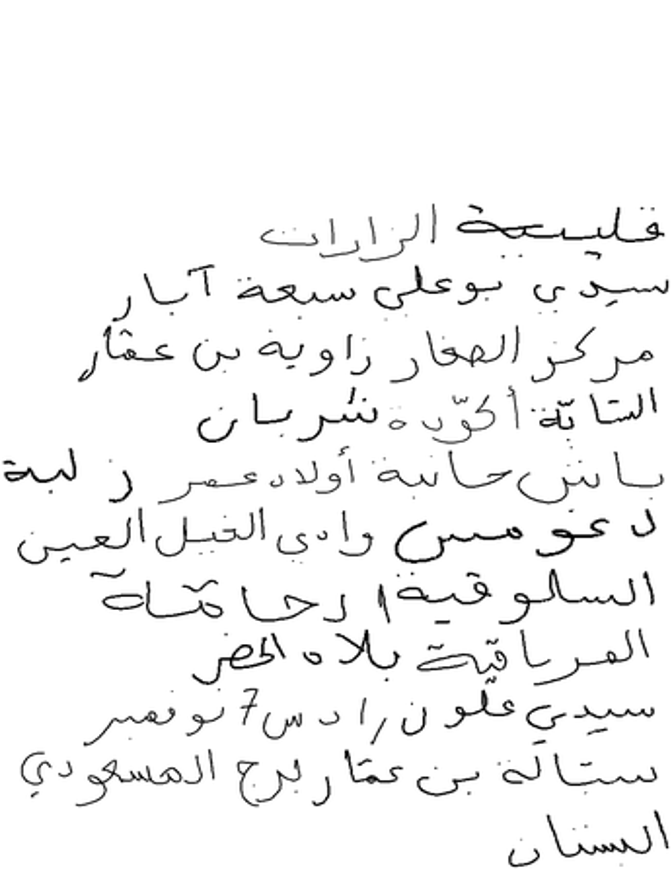 قليبية الزارات
سيدي بوعلي سبعة آبار
مركز الصغار زاوية بن عمّار
الشابّة أكوّدة شربان
باش حانبة أولاد عمر زلبة
دغومس وادي الخيل العين
السلوقية
المرناقية بلاد الحضر
سيدي علّون رادس 7 نوفمبر
ستالة بن عمّار برج المسعودي
البستان